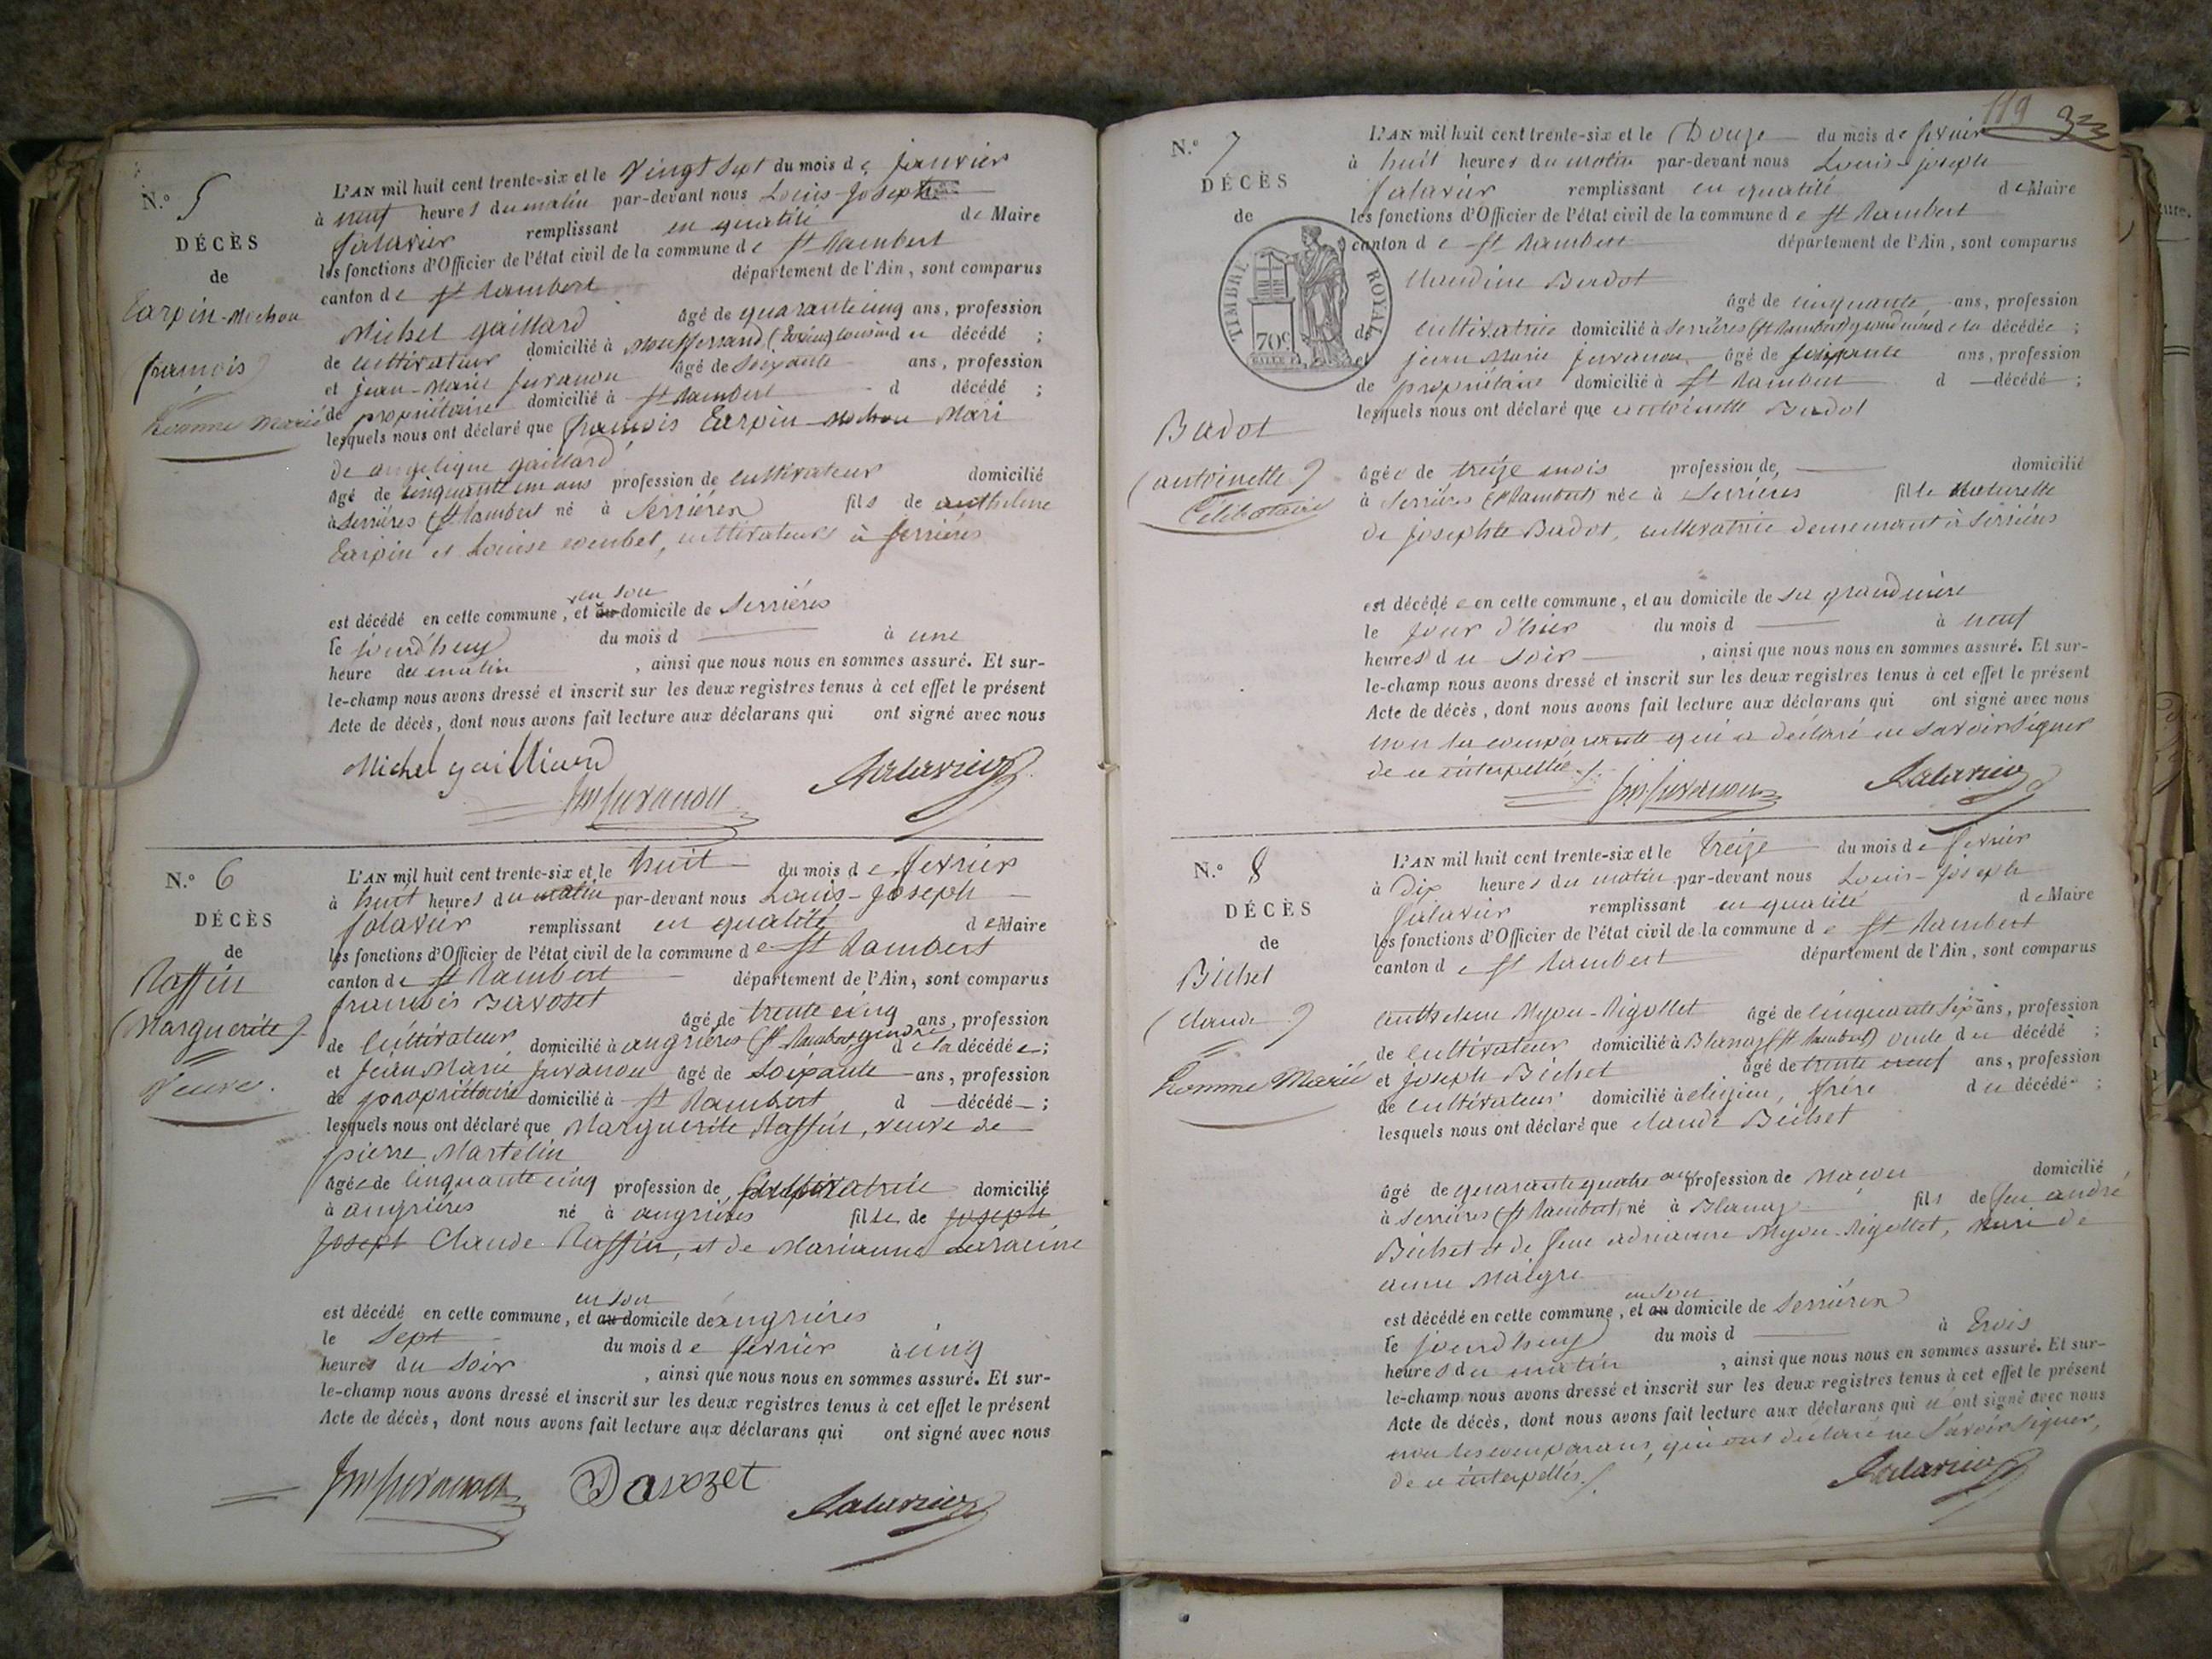 N.° 5
DÉCÈS
de
Carpin-Mochon
(françois)
homme Marié
L'AN mil huit cent trente-six et le vingt sept du mois de janvier
à neuf heures du matin par-devant nous Louis-Joseph
Salavier remplissant en qualité de Maire
les fonctions d'Officier de l'état civil de la commune de St Rambert
canton de St Rambert département de l'Ain, sont comparus
Michel gaillard âgé de quarante cinq ans, profession
de cultivateur domicilié à Montferrand du décédé ;
et jean-Marie juvanon âgé de soixante ans, profession
de propriétaire domicilié à St Rambert d décédé ;
lesquels nous ont déclaré que françois Carpin-Mochon Mari
de angelique gaillard
âgé de cinquante un ans profession de cultivateur domicilié
à Serrières (St Rambert) né à Serrières fils de anthelme
Carpin et Louise coubet, cultivateurs à Serrières
en son
est décédé en cette commune, et au domicile de Serrières
le jourd'huy du mois d à une
heure du matin , ainsi que nous nous en sommes assuré. Et sur-
le-champ nous avons dressé et inscrit sur les deux registres tenus à cet effet le présent
Acte de décès, dont nous avons fait lecture aux déclarans qui ont signé avec nous
Michel gailliard Salavier
jm juvanon
N.° 6
DÉCÈS
de
Raffin
(Marguerite)
Veuve.
L'AN mil huit cent trente-six et le huit du mois de fevrier
à huit heures du matin par-devant nous Louis-Joseph
Salavier remplissant en qualité de Maire
les fonctions d'Officier de l'état civil de la commune de St Rambert
canton de St Rambert département de l'Ain, sont comparus
françois Davoset âgé de trente cinq ans, profession
de cultivateur domicilié à angrières (St Rambert) gendre de la décédée ;
et jean Marie juvanon âgé de soixante ans, profession
de propriétaire domicilié à St Rambert d décédé ;
lesquels nous ont déclaré que Marguerite Raffin, veuve de
pierre Martelin
âgée de cinquante cinq profession de cultivatrice domicilié
à angrières né à angrières fille de joseph
joseph Claude Raffin, et de Marianne Laracine
en son
est décédé en cette commune, et au domicile de angrières
le sept du mois de fevrier à cinq
heures du soir , ainsi que nous nous en sommes assuré. Et sur-
le-champ nous avons dressé et inscrit sur les deux registres tenus à cet effet le présent
Acte de décès, dont nous avons fait lecture aux déclarans qui ont signé avec nous
jm juvanon Davozet Salavier
119
N.° 7
DÉCÈS
de
TIMBRE ROYAL
70c
Badot
(antoinette)
Célibataire
L'AN mil huit cent trente-six et le Douze du mois de fevrier
à huit heures du matin par-devant nous Louis-joseph
Salavier remplissant en qualité de Maire
les fonctions d'Officier de l'état civil de la commune de St Rambert
canton de St Rambert département de l'Ain, sont comparus
Claudine Badot âgé de cinquante ans, profession
de cultivatrice domicilié à Serrières (St Rambert) grand mère de la décédée ;
et jean Marie juvanon âgé de soixante ans, profession
de propriétaire domicilié à St Rambert d décédé ;
lesquels nous ont déclaré que antoinette Badot
âgée de treize mois profession de domicilié
à Serrières (St Rambert) née à Serrières fille naturelle
de josephte Badot, cultivatrice demeurant à Serrières
est décédée en cette commune, et au domicile de sa grand mère
le jour d'hier du mois d à neuf
heures du soir , ainsi que nous nous en sommes assuré. Et sur-
le-champ nous avons dressé et inscrit sur les deux registres tenus à cet effet le présent
Acte de décès, dont nous avons fait lecture aux déclarans qui ont signé avec nous
non la comparante qui a déclaré ne savoir signer
de ce interpellée.
jm juvanon Salavier
N.° 8
DÉCÈS
de
Bichet
(claude)
homme Marié
L'AN mil huit cent trente-six et le treize du mois de fevrier
à Dix heures du matin par-devant nous Louis-joseph
Salavier remplissant en qualité de Maire
les fonctions d'Officier de l'état civil de la commune de St Rambert
canton de St Rambert département de l'Ain, sont comparus
anthelme Myon-Rigollet âgé de cinquante six ans, profession
de cultivateur domicilié à Blanaz (St Rambert) oncle du décédé ;
et joseph Bichet âgé de trente neuf ans, profession
de cultivateur domicilié à cleyzieu, frère du décédé ;
lesquels nous ont déclaré que claude Bichet
âgé de quarante quatre ans profession de Maçon domicilié
à Serrières (St Rambert) né à Blanaz fils de feu andré
Bichet et de feue adrianne Myon-Rigollet, Mari de
anne Maigre
en son
est décédé en cette commune, et au domicile de Serrières
le jourd'huy du mois d à trois
heures du matin , ainsi que nous nous en sommes assuré. Et sur-
le-champ nous avons dressé et inscrit sur les deux registres tenus à cet effet le présent
Acte de décès, dont nous avons fait lecture aux déclarans qui n'ont signé avec nous
non les comparans, qui ont déclaré ne savoir signer,
de ce interpellés.
Salavier